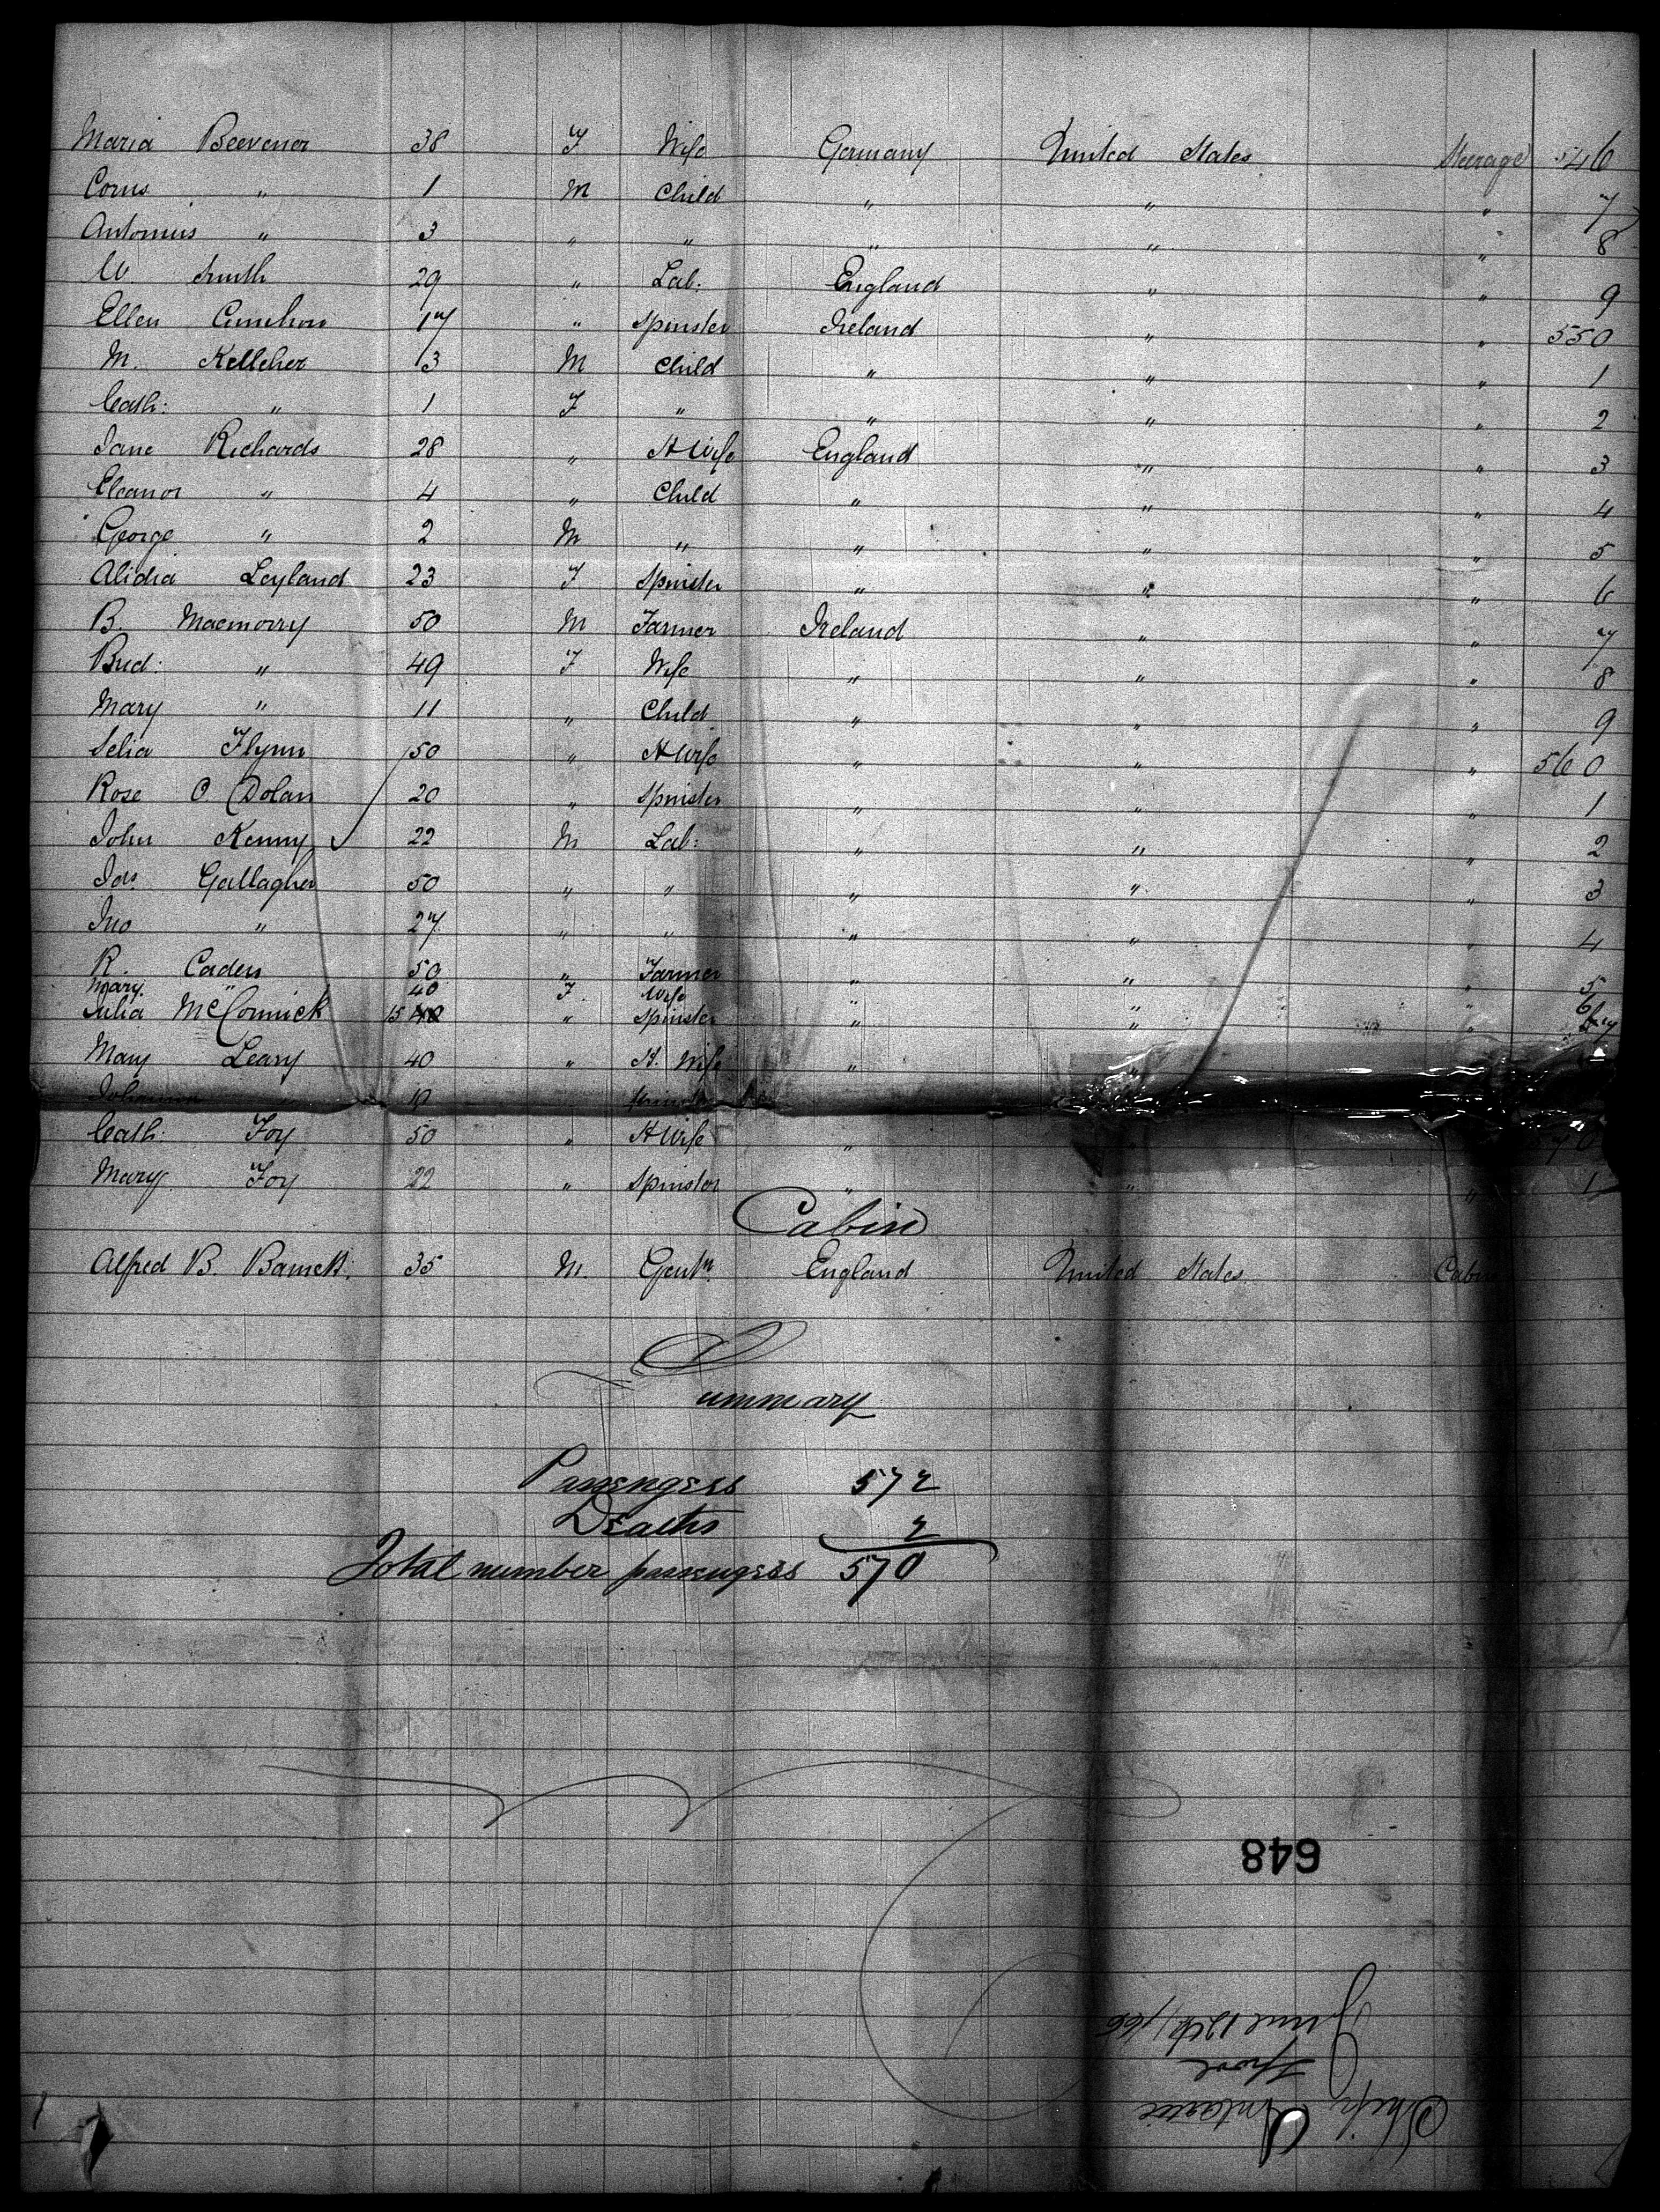 Maria Beevener 38 F Wife Germany United States Steerage 546
Corns " 1 M Child " " " 7
Antonius " 3 " " " " " 8
W. Smith 29 " Lab: England " " 9
Ellen 17 " Spinster Ireland " " 550
M. Kelleher 3 M Child " " " 1
Cath: " 1 F " " " " 2
Jane Richards 28 " H Wife England " " 3
Eleanor " 4 " Child " " " 4
George " 2 M " " " " 5
Alidia Leyland 23 F Spinster " " " 6
B. Macmorry 50 M Farmer Ireland " " 7
Brid: " 49 F Wife " " " 8
Mary " 11 " Child " " " 9
Selia Flynn 50 " H Wife " " " 560
Rose O. Dolan 20 " Spinster " " " 1
John Kenny 22 M Lab: " " " 2
Jas Gallagher 50 " " " " " 3
Jno " 27 " " " " " 4
R. Caden 50 " Farmer " " " 5
Mary " 40 F. Wife " " " 6
Julia McCormick 15 " Spinster " " " 7
Mary Leary 40 " H. Wife " "
Johanna 10 Spinster
Cath: Foy 50 " H Wife " 570
Mary Foy 22 " Spinster " " " 1
Cabin
Alfred B. Barnett. 35 M. Gentn. England United States Cabin
Summary
Passengers 572
Deaths 2
Total number passengers 570
648
Ship Antarctic
Lpool
June 12th/66